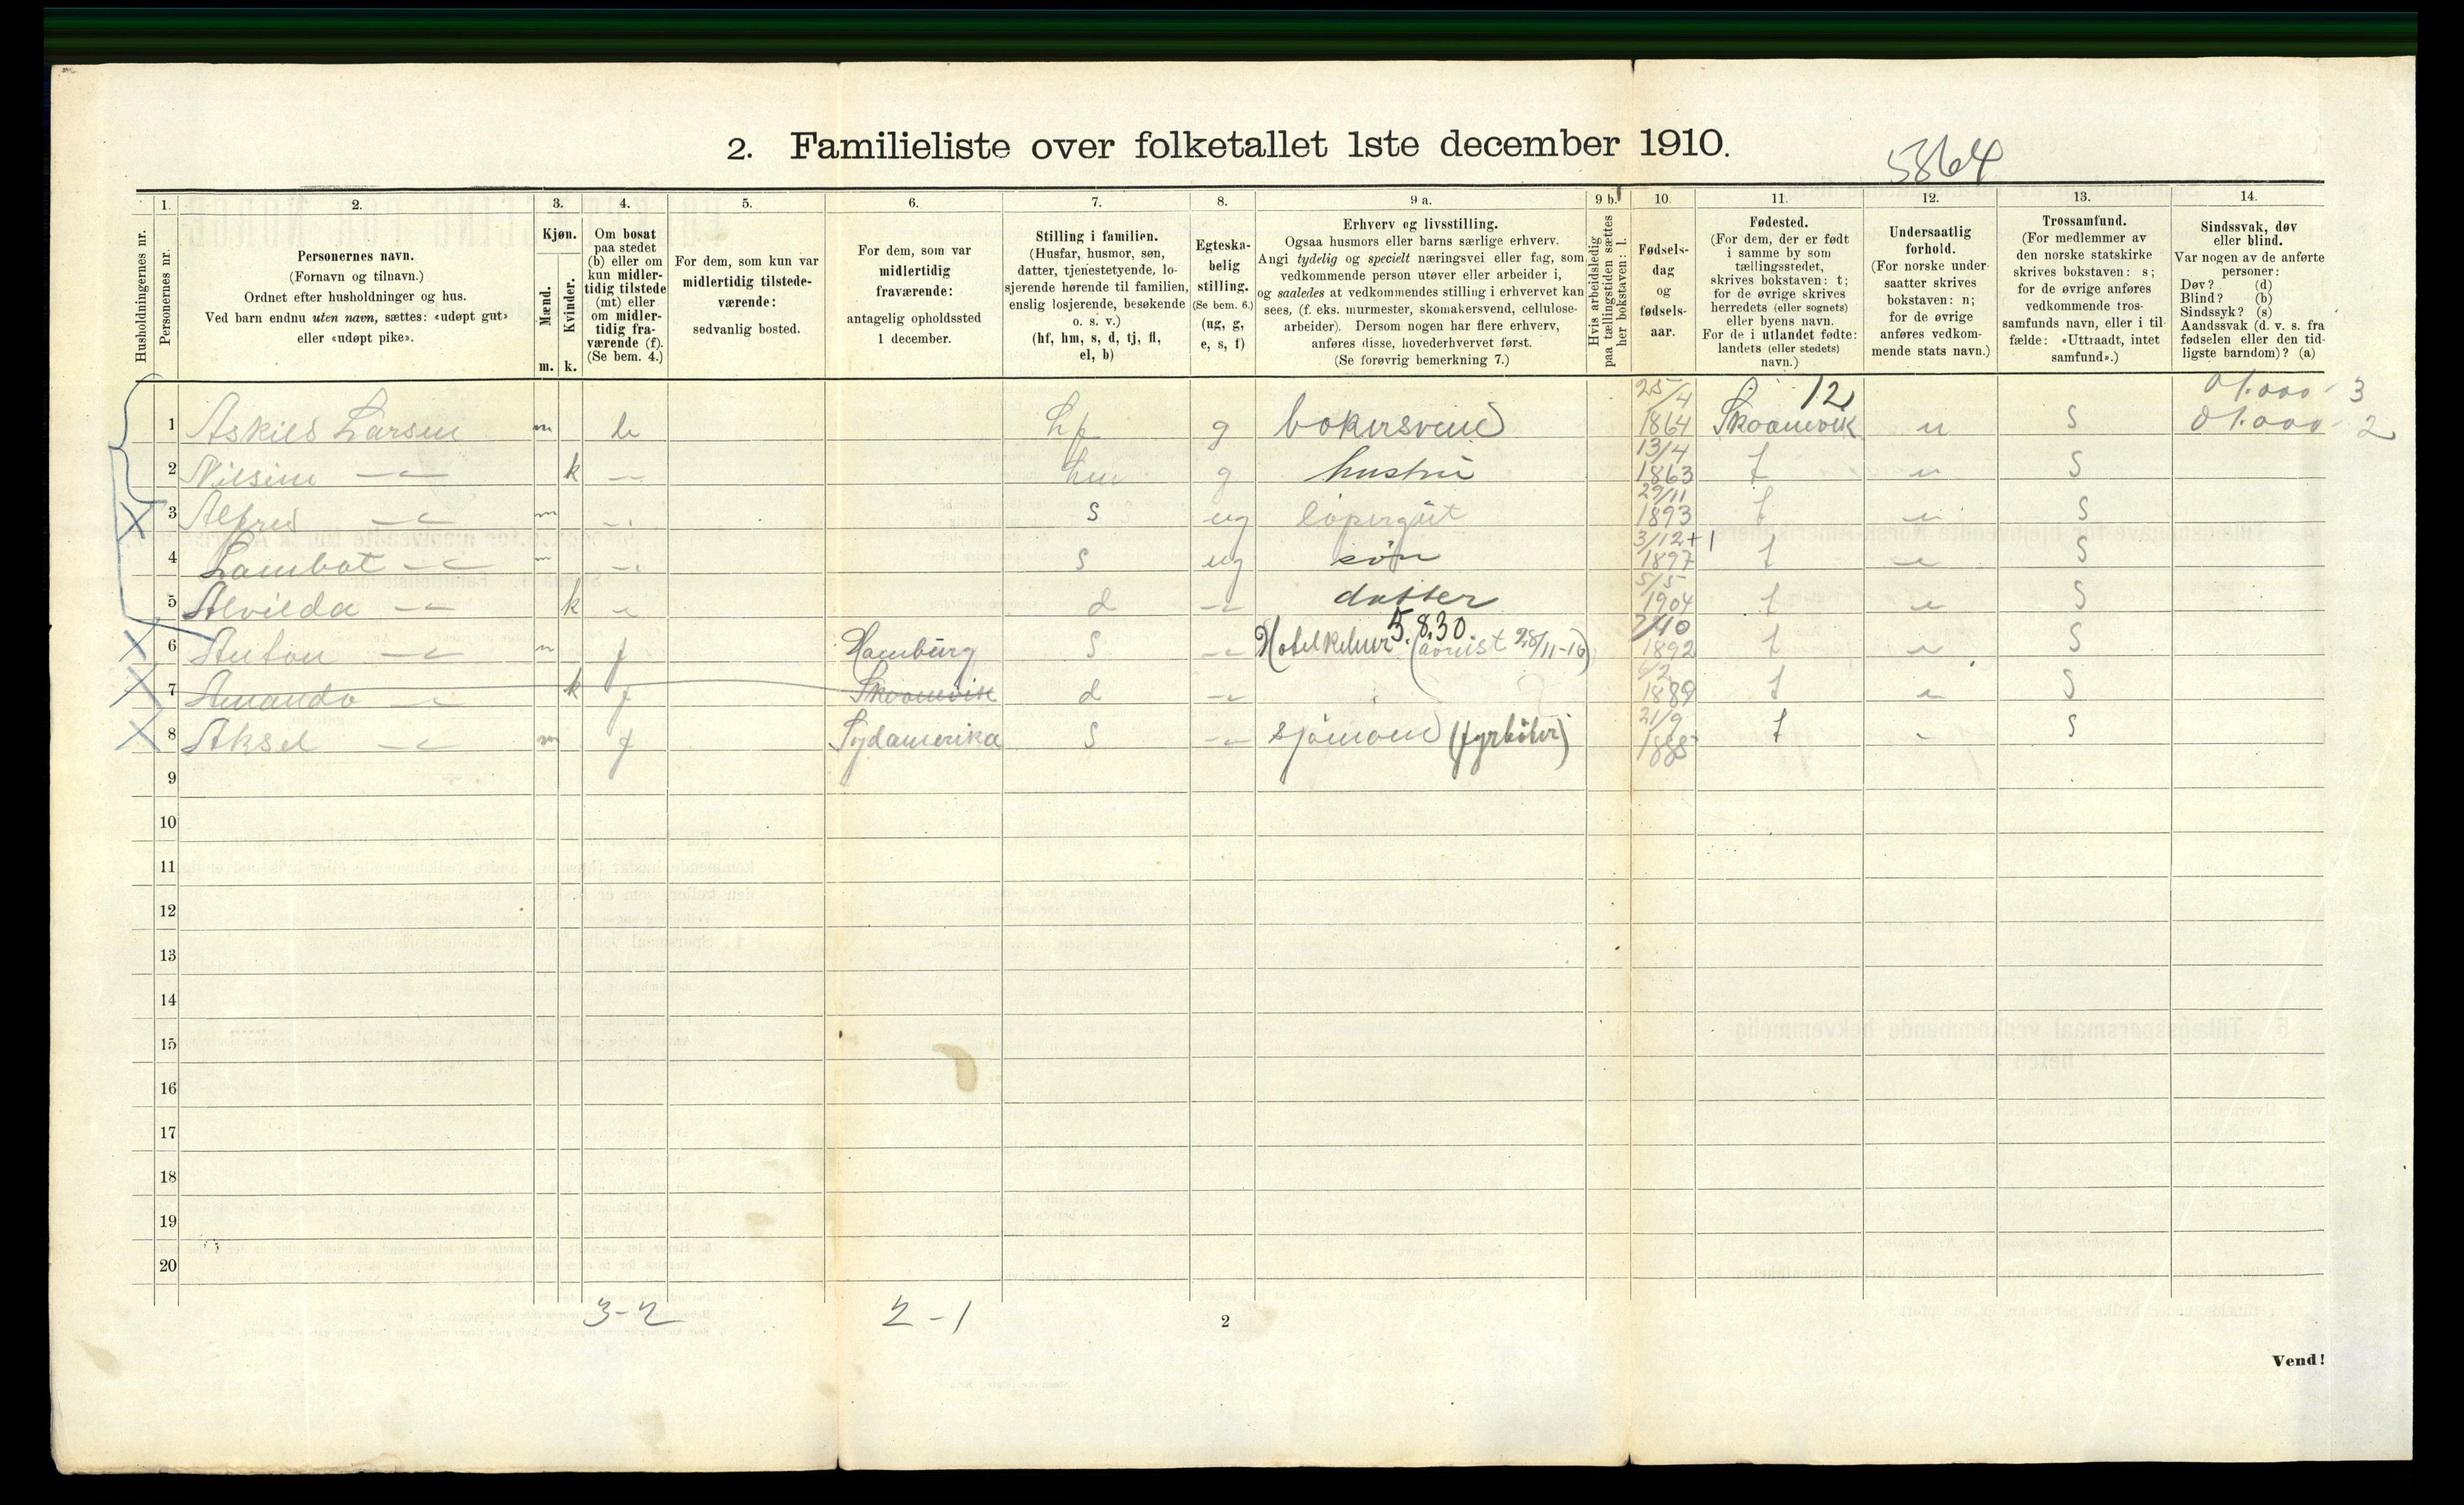 2. Familieliste over folketallet 1ste december 1910.
5864
Husholdningernes nr.
1.
Personernes nr.
2.
Personernes navn.
(Fornavn og tilnavn.)
Ordnet efter husholdninger og hus.
Ved barn endnu uten navn, sættes: «udøpt gut»
eller «udøpt pike».
3.
Kjøn.
Mænd.
Kvinder.
m. k.
4.
Om bosat
paa stedet
(b) eller om
kun midler-
tidig tilstede
(mt) eller
om midler-
tidig fra-
værende (f).
(Se bem. 4.)
5.
For dem, som kun var
midlertidig tilstede-
værende:
sedvanlig bosted.
6.
For dem, som var
midlertidig
fraværende:
antagelig opholdssted
1 december.
7.
Stilling i familien.
(Husfar, husmor, søn,
datter, tjenestetyende, lo-
sjerende hørende til familien,
enslig losjerende, besøkende
o. s. v.)
(hf, hm, s, d, tj, fl,
el, b)
8.
Egteska-
belig
stilling.
(Se bem. 6.)
(ug, g,
e, s, f)
9 a.
Erhverv og livsstilling.
Ogsaa husmors eller barns særlige erhverv.
Angi tydelig og specielt næringsvei eller fag, som
vedkommende person utøver eller arbeider i,
og saaledes at vedkommendes stilling i erhvervet kan
sees, (f. eks. murmester, skomakersvend, cellulose-
arbeider). Dersom nogen har flere erhverv,
anføres disse, hovederhvervet først.
(Se forøvrig bemerkning 7.)
9 b.
Hvis arbeidsledig
paa tællingstiden sættes
her bokstaven: l.
10.
Fødsels-
dag
og
fødsels-
aar.
11.
Fødested.
(For dem, der er født
i samme by som
tællingsstedet,
skrives bokstaven: t;
for de øvrige skrives
herredets (eller sognets)
eller byens navn.
For de i utlandet fødte:
landets (eller stedets)
navn.)
12.
Undersaatlig
forhold.
(For norske under-
saatter skrives
bokstaven: n;
for de øvrige
anføres vedkom-
mende stats navn.)
13.
Trossamfund.
(For medlemmer av
den norske statskirke
skrives bokstaven: s;
for de øvrige anføres
vedkommende tros-
samfunds navn, eller i til-
fælde: «Uttraadt, intet
samfund».)
14.
Sindssvak, døv
eller blind.
Var nogen av de anførte
personer:
Døv? (d)
Blind? (b)
Sindssyk? (s)
Aandssvak (d. v. s. fra
fødselen eller den tid-
ligste barndom)? (a)
12 01.000 - 3
1 Askild Larsen m b hf g bokersvend 25/4 1864 Skoanevik n s 01.000 - 2
2 Nilsine k hm g hustru 13/4 1863 t n s
3 Alfred m s ug løpergut 29/11 1893 t n s
4 Lambat m s ug søn 3/12 + 1 1897 t n s
5 Alvilda k d datter 5/5 1904 t n s
5.8.30.
6 Anton m f Hamburg s Hotelkelner 7/10 1892 t n s
7 Amanda k f Skoanevik d 1889 t n s
8 Aksel m f Sydamerika s sjømand (fyrbøter) 21/9 1888 t s
9
10
11
12
13
14
15
16
17
18
19
20
3-2 2-1
2
Vend!